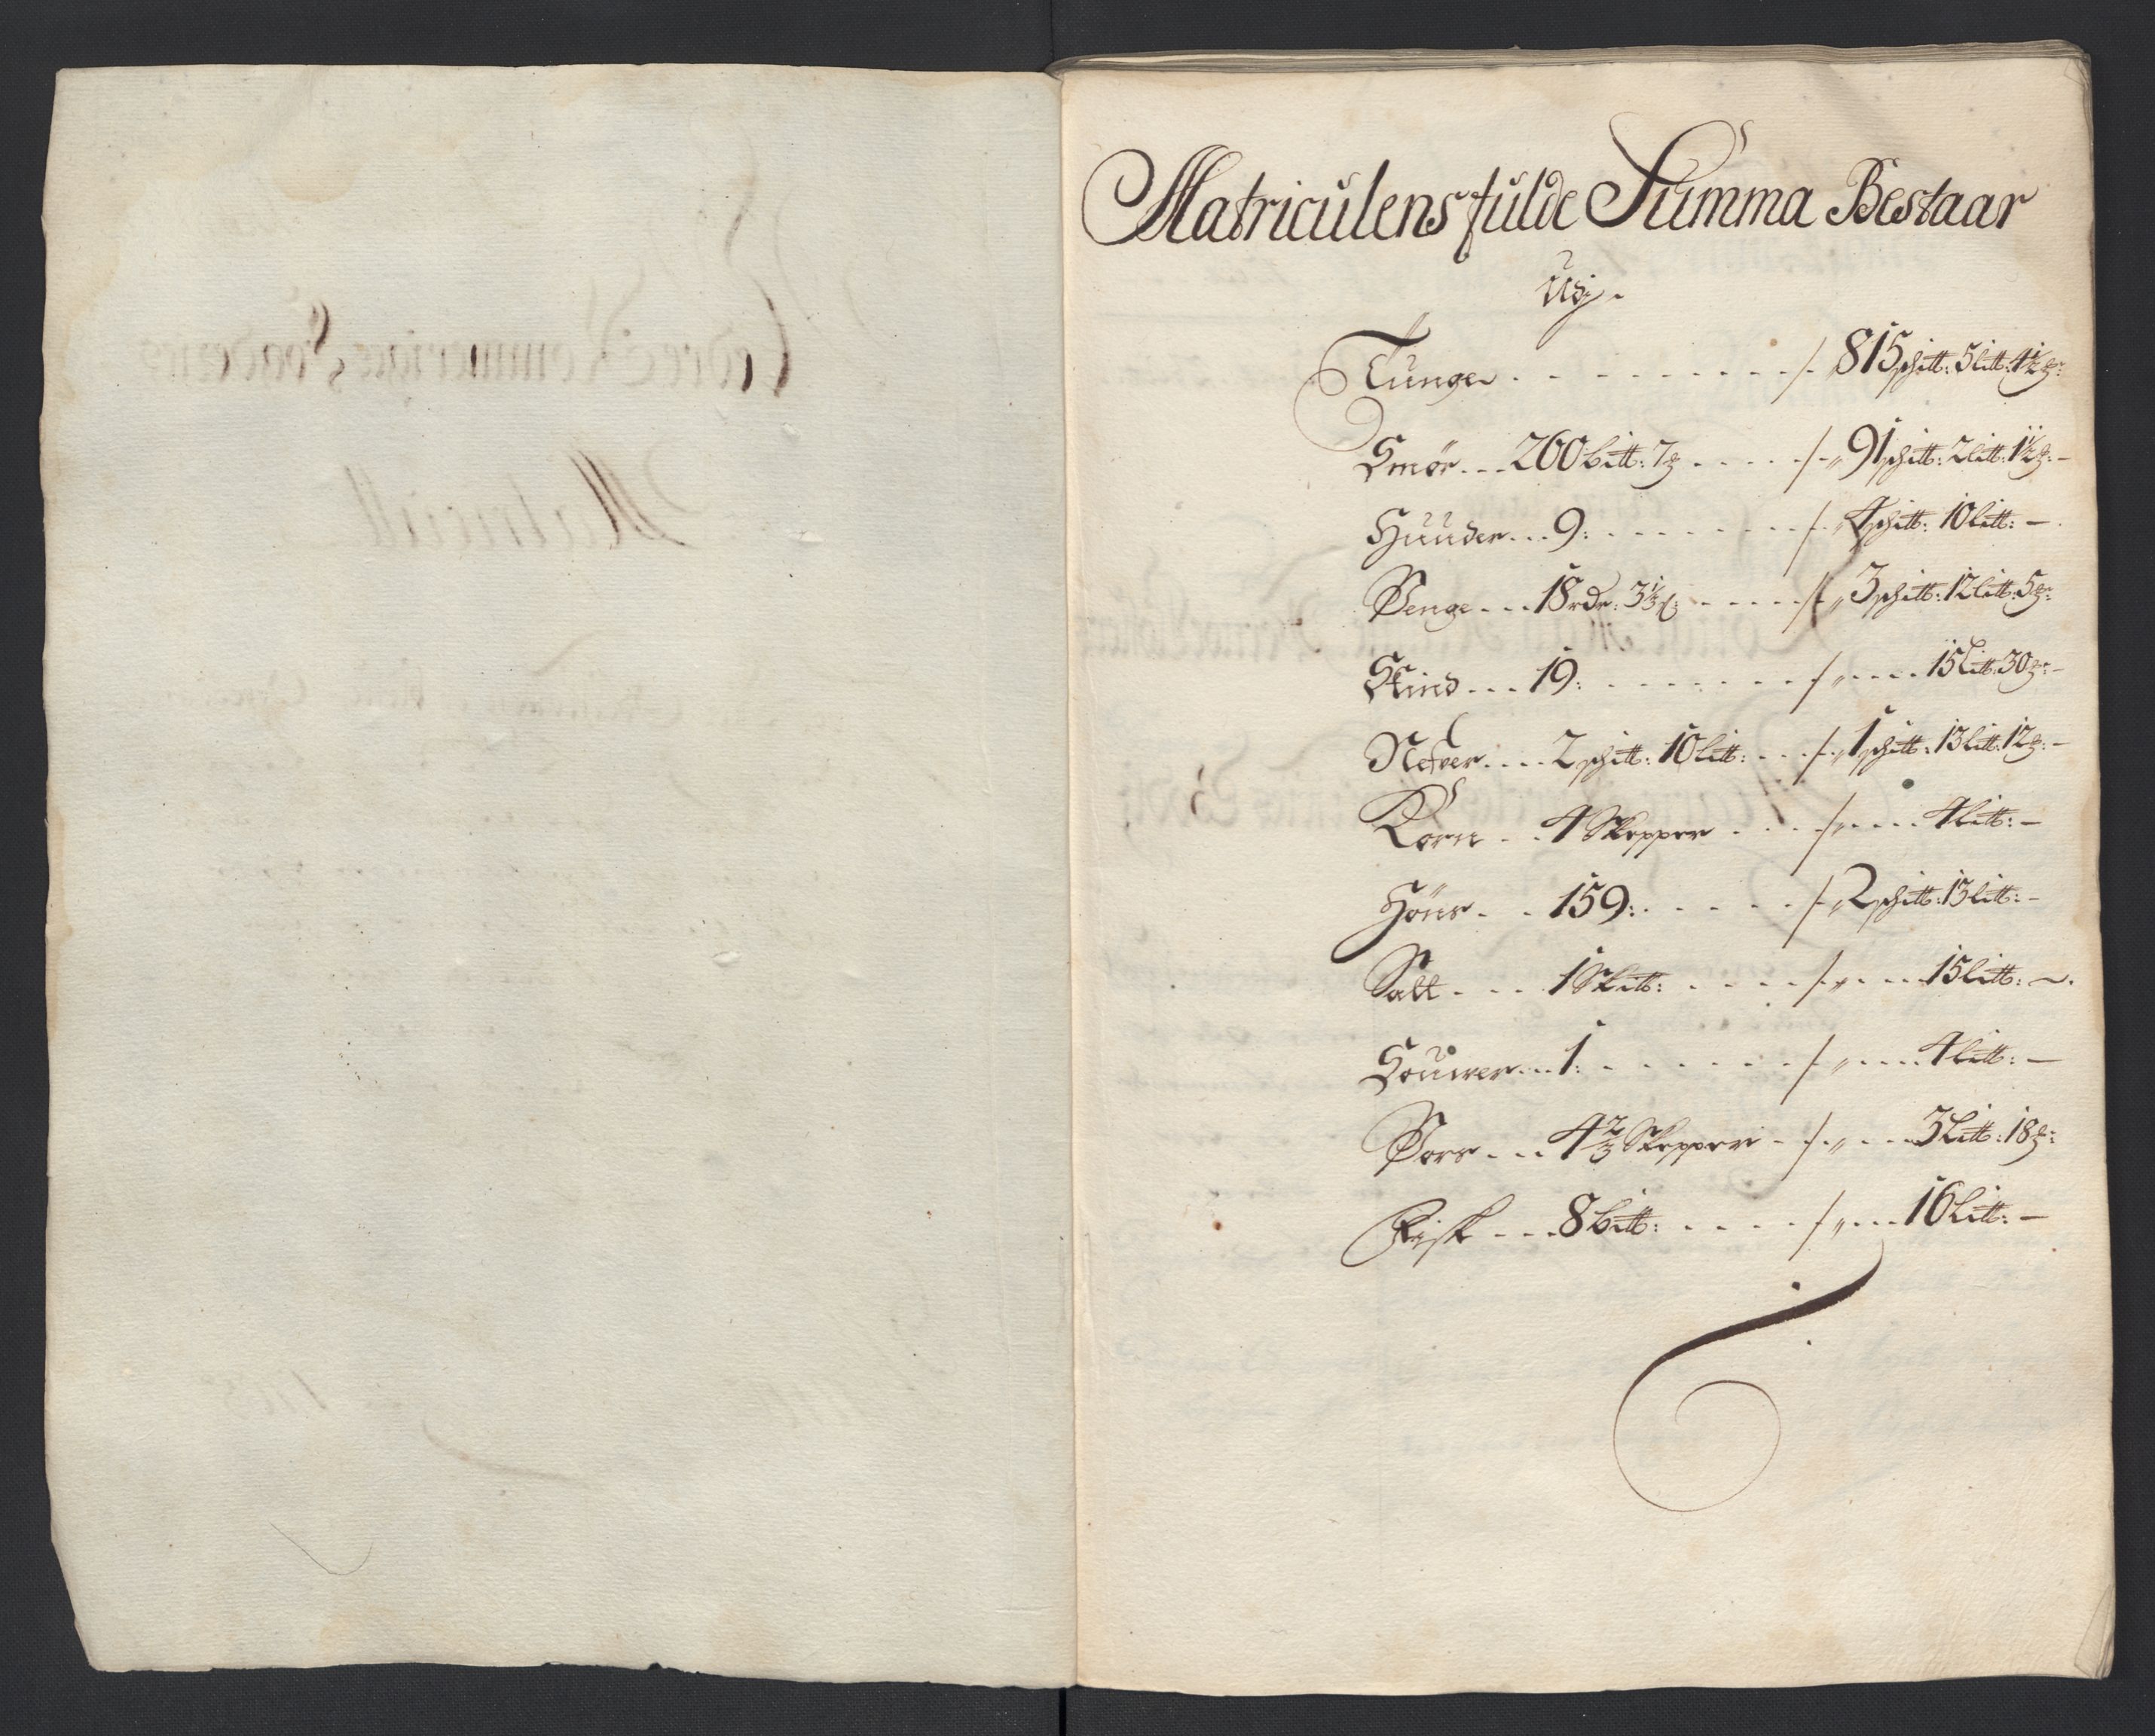 Matriculens fulde Summa Bestaar
Udj.
Tunge . . . . . . . . . ./. 815 schitt: 5 litt: 4½ ℔:
Smör . . . 260 bitt: 7 ℔ . . . . ./. „ 91 schitt: 2 litt: 1½ ℔: –
Huuder . . . 9: . . . . . . . ./. „ 4 schitt: 10 litt: –
Penge . . . 18 rdr: 3⅓ s: . . . . ./. „ 3 schitt: 12 litt: 5 ℔:
Skind . . . 19: . . . . . . . ./. „ . . . . 15 Litt: 30 ℔: –
Nefver . . . . 2 schitt: 10 litt: . . . ./. „ 1 schitt: 13 litt: 12 ℔: –
Korn . . 4 Skepper . . . ./. „ . . . . 4 litt: –
Höns . . 159: . . . . . ./. „ 2 schitt: 13 litt: –
Salt . . . 1 Skitt: . . . . ./. „ . . . . 15 litt: –
Souver . . . 1: . . . . . . ./. „ . . . . 4 litt: –
Pors . . . 4⅔ Skepper . ./. „ . . . 3 Litt: 18 ℔:
Fisk . . . 8 bitt: . . . . ./. „ . . . 16 Litt: –